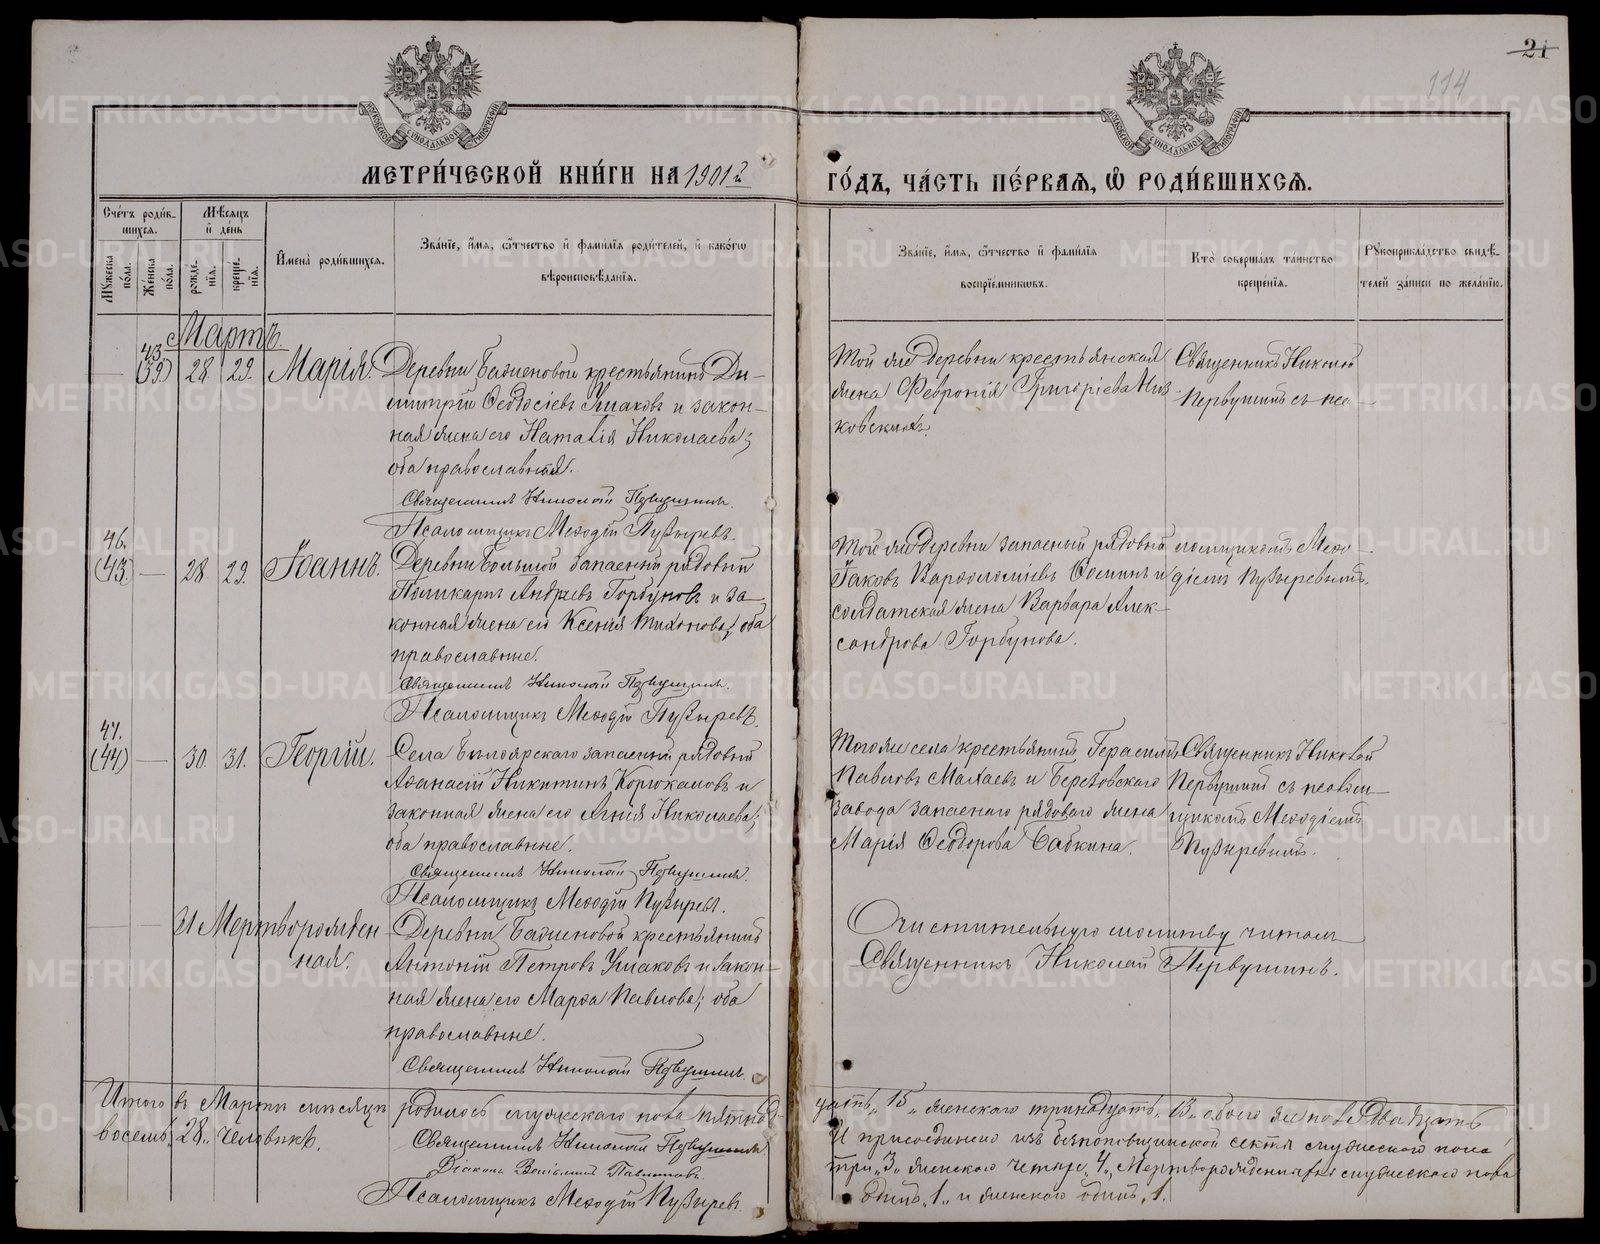 21
114
МЕТРИ́ЧЕСКОЙ КНИ́ГИ НА 1901й
ГО́ДЪ, ЧА́СТЬ ПЕ́РВАЯ, Ѿ РОДИ́ВШИХСЯ.
Сче́тъ роди́в-
шихся.
Мѣ́сяцъ
и҆ де́нь
Мꙋ́жеска
по́ла.
Же́нска
по́ла.
рожде́-
нїя.
креще́-
нїя.
И҆мена̀ роди́вшихся.
Зва́нїе, и҆́мя, ѻ҆́тчество и҆ фами́лїя роди́телей, и҆ како́гѡ
вѣроисповѣ́данїя.
Зва́нїе, и҆́мя, ѻ҆́тчество и҆ фами́лїя
воспрїе́мникѡвъ.
Кто̀ соверша́лъ та́инство
креще́нїя.
Рꙋкоприкла́дство свидѣ́-
телей за́писи по жела́нїю.
Мартъ.
43.
(39) 28 29. Марія. Деревни Баженовой крестьянинъ Ди-
митрій Ѳеодосіевъ Ушаковъ и закон-
ная жена его Наталія Николаева;
оба православныя.
Священникъ Николай Первушинъ.
Псаломщикъ Меѳодій Пузыревъ.
Той же деревни крестьянская
жена Феврония Григорієва
Священникъ Николай
Первушинъ съ пса-
46.
(43.) — 28 29. Іоаннъ. Деревни Большой запасный рядовый
Поликарпъ Андреевъ Горбуновъ и за-
конная жена его Ксенія Тихонова; оба
православные.
Священникъ Николай Первушинъ.
Псаломщикъ Меѳодій Пузыревъ.
Той же деревни запасный рядовый
Іаковъ Варѳоломіевъ и
солдатская жена Варвара Алек-
сандрова Горбунова.
ломщикомъ Меѳо-
діемъ Пузыревымъ.
47.
(44) — 30. 31. Георгій. Села Бѣлоярскаго запасный рядовый
Аѳанасій Никитинъ Коркожаковъ и
законная жена его Агнія Николаева;
оба православные.
Священникъ Николай Первушинъ.
Псаломщикъ Меѳодій Пузыревъ.
Того же села крестьянинъ Герасимъ
Павловъ Малаевъ и Березовскаго
завода запаснаго рядоваго жена
Марія Ѳеодорова Бабкина.
Священникъ Николай
Первушинъ съ псалом-
щикомъ Меѳодіемъ
Пузыревымъ.
31 Мертворожден
ная.
Деревни Баженовой крестьянинъ
Антоній Петровъ Ушаковъ и закон-
ная жена его Марѳа Павлова; оба
православные.
Священникъ Николай Первушинъ
Очистительную молитву читалъ
Священникъ Николай Первушинъ.
Итого въ Мартѣ мѣсяцѣ родилось мужескаго пола пятнад-
цать „15„ женскаго тринадцать „13„ обоего пола двадцать
восемь „28„ человѣкъ.
И присоединено изъ безпоповщинской секты мужескаго пола
три „3„ женскаго четыре „4„, Мертворожденныхъ мужескаго пола
одинъ „1„ и женскаго одинъ „1.
Священникъ Николай Первушинъ
Діаконъ
Псаломщикъ Меѳодій Пузыревъ.
METRIKI.GASO-URAL.RU